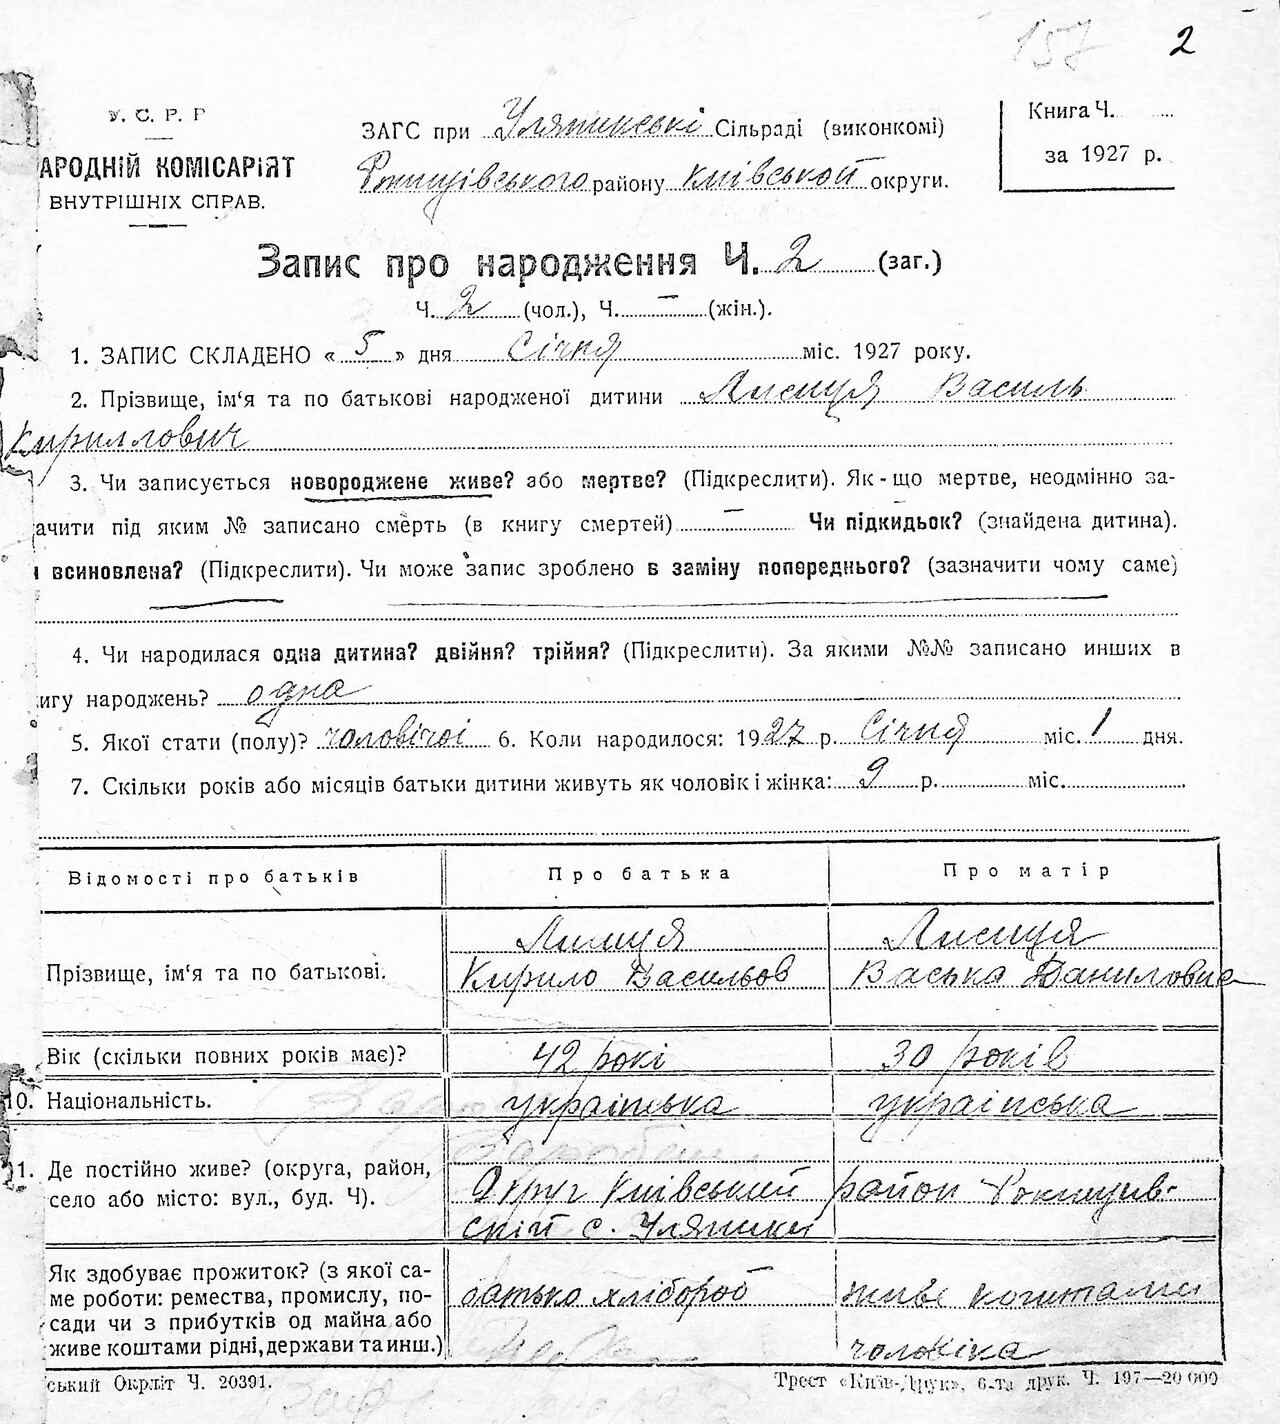 157 2
У. С. Р. Р
АРОДНІЙ КОМІСАРІЯТ
ВНУТРІШНІХ СПРАВ.
ЗАГС при Уляниські Сільраді (виконкомі)
району Київськой округи.
Книга Ч.
за 1927 р.
Запис про народження Ч. 2 (заг.)
Ч. 2 (чол.), Ч. — (жін.).
1. ЗАПИС СКЛАДЕНО « 5 » дня Січня міс. 1927 року.
2. Прізвище, ім‘я та по батькові народженої дитини Лисиця Василь
Кириллович
3. Чи записується новороджене живе? або мертве? (Підкреслити). Як-що мертве, неодмінно за-
ачити під яким № записано смерть (в книгу смертей) — Чи підкидьок? (знайдена дитина).
и всиновлена? (Підкреслити). Чи може запис зроблено в заміну попереднього? (зазначити чому саме)
4. Чи народилася одна дитина? двійня? трійня? (Підкреслити). За якими №№ записано инших в
игу народжень? одна
5. Якої стати (полу)? чоловічоі 6. Коли народилося: 1927 р. Січня міс. 1 дня.
7. Скільки років або місяців батьки дитини живуть як чоловік і жінка: 9 р. міс.
Відомості про батьків Про батька Про матір
Прізвище, ім'я та по батькові. Лисиця Кирило Васильов Лисиця Васька Даниловна
Вік (скільки повних років має)? 42 рокі 30 років
10. Національність. українська українська
11. Де постійно живе? (округа, район,
село або місто: вул., буд. Ч). Округ Київський район
с.
Як здобуває прожиток? (з якої са-
ме роботи: ремества, промислу, по-
сади чи з прибутків од майна або
живе коштами рідні, держави та инш.) батько хлібороб живе коштами
чоловіка
ський Окрліт Ч. 20391. Трест «Київ-Друк», 6-та друк. Ч. 197—20 000